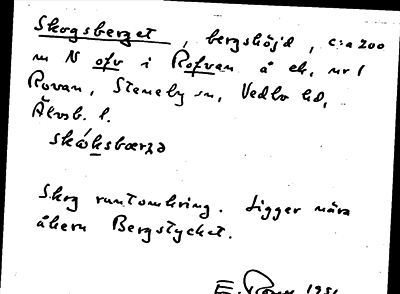 Skogsberget, bergshöjd, c:a 200
m N ofv i Rofvan å ek. nr 1
Rovan, Steneby sn, Vedbo hd,
Älvsb. l.
skógsbærʒə
Skog runtomkring. Ligger nära
åkern Bergstycket.
E.